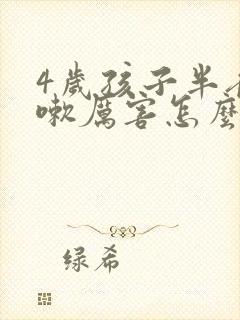 4歲孩子半
嗽厲害怎麼
绿希